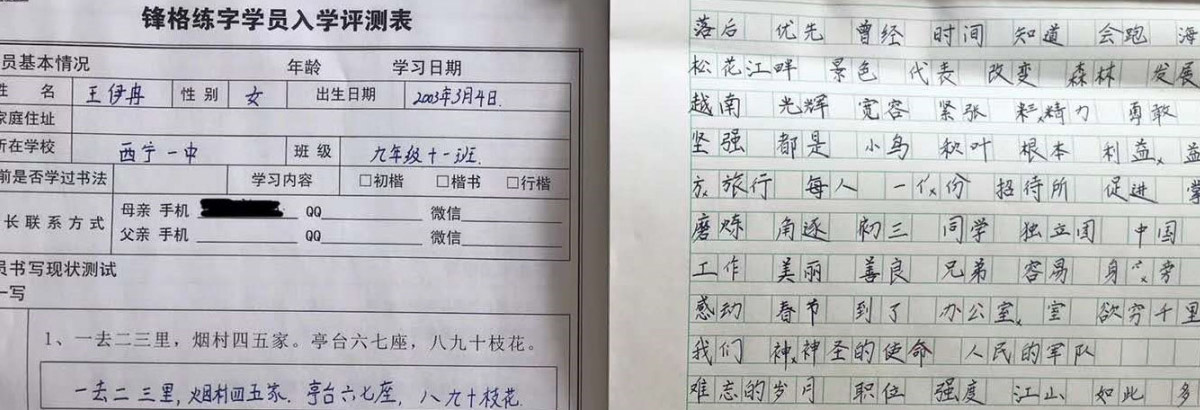 锋格练字学员入学评测表
员基本情况 年龄 学习日期
姓 名 王伊冉 性别 女 出生日期 2003年3月4日.
家庭住址
所在学校 西宁一中 班级 九年级十一班.
前是否学过书法 学习内容 □初楷 □楷书 □行楷
长联系方式 母亲 手机 QQ 微信
父亲 手机 QQ 微信
员书写现状测试
一写
1、一去二三里，烟村四五家。亭台六七座，八九十枝花。
一去二三里,烟村四五家.亭台六七座,八九十枝花.
落后 优先 曾经 时间 知道 会跑 海
松花江畔 景色 代表 改变 森林 发展
越南 光辉 宽容 紧张 精力 勇敢
坚强 都是 小鸟 秋叶 根本 利益 益
旅行 每人 一份 招待所 促进 掌
磨炼 角逐 初三 同学 独立国 中国
工作 美丽 善良 兄弟 容易 身旁
感动 春节 到了 办公室 室 欲穷千里
我们 神 神圣的使命 人民的军队
难忘的岁月 职位 强度 江山 如此 多